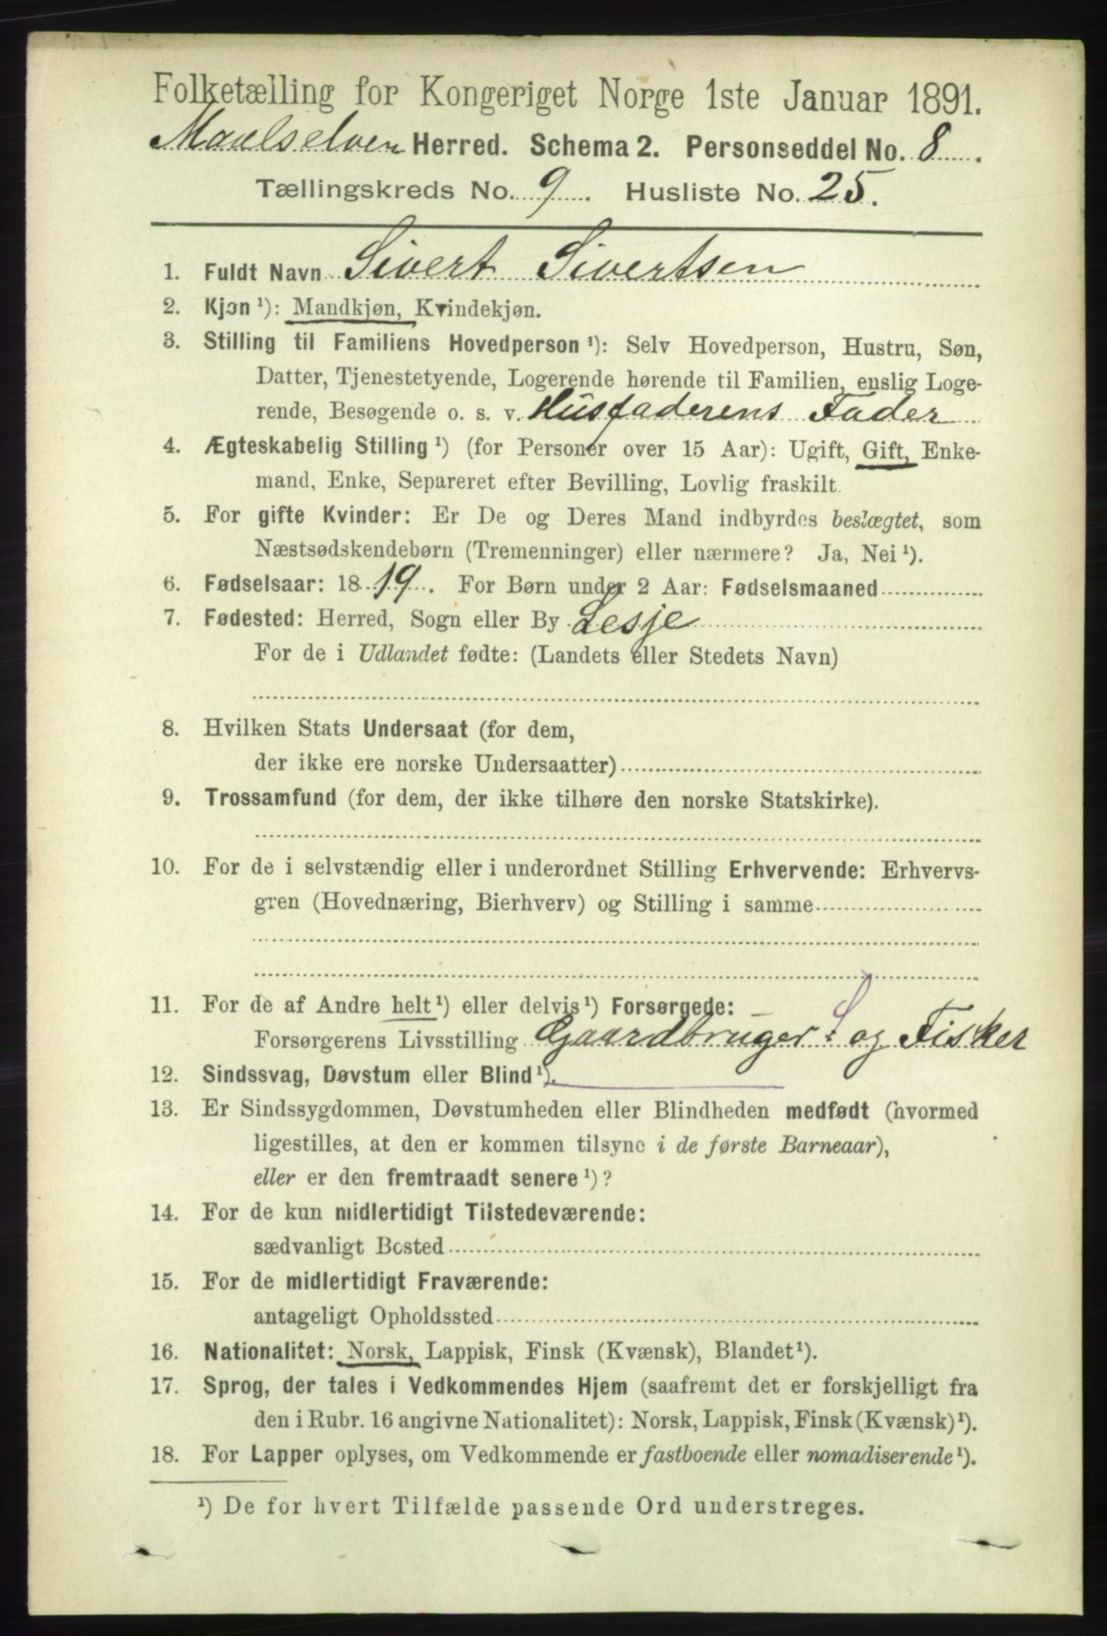 Folketælling for Kongeriget Norge 1ste Januar 1891.
Maalselven Herred. Schema 2. Personseddel No. 8.
Tællingskreds No. 9. Husliste No. 25.
1. Fuldt Navn Sivert Sivertsen
2. Kjøn ¹): Mandkjøn, Kvindekjøn.
3. Stilling til Familiens Hovedperson ¹): Selv Hovedperson, Hustru, Søn,
Datter, Tjenestetyende, Logerende hørende til Familien, enslig Loge-
rende, Besøgende o. s. v. Husfaderens Fader
4. Ægteskabelig Stilling ¹) (for Personer over 15 Aar): Ugift, Gift, Enke-
mand, Enke, Separeret efter Bevilling, Lovlig fraskilt.
5. For gifte Kvinder: Er De og Deres Mand indbyrdes beslægtet, som
Næstsødskendebørn (Tremenninger) eller nærmere? Ja, Nei ¹).
6. Fødselsaar: 1819. For Børn under 2 Aar: Fødselsmaaned
7. Fødested: Herred, Sogn eller By Lesje
For de i Udlandet fødte: (Landets eller Stedets Navn)
8. Hvilken Stats Undersaat (for dem,
der ikke ere norske Undersaatter)
9. Trossamfund (for dem, der ikke tilhøre den norske Statskirke).
10. For de i selvstændig eller i underordnet Stilling Erhvervende: Erhvervs-
gren (Hovednæring, Bierhverv) og Stilling i samme
11. For de af Andre helt ¹) eller delvis ¹) Forsørgede:
Forsørgerens Livsstilling Gaardbruger S og Fisker
12. Sindssvag, Døvstum eller Blind ¹).
13. Er Sindssygdommen, Døvstumheden eller Blindheden medfødt (hvormed
ligestilles, at den er kommen tilsyne i de første Barneaar),
eller er den fremtraadt senere ¹)?
14. For de kun midlertidigt Tilstedeværende:
sædvanligt Bosted
15. For de midlertidigt Fraværende:
antageligt Opholdssted
16. Nationalitet: Norsk, Lappisk, Finsk (Kvænsk), Blandet ¹).
17. Sprog, der tales i Vedkommendes Hjem (saafremt det er forskjelligt fra
den i Rubr. 16 angivne Nationalitet): Norsk, Lappisk, Finsk (Kvænsk) ¹).
18. For Lapper oplyses, om Vedkommende er fastboende eller nomadiserende ¹).
¹) De for hvert Tilfælde passende Ord understreges.